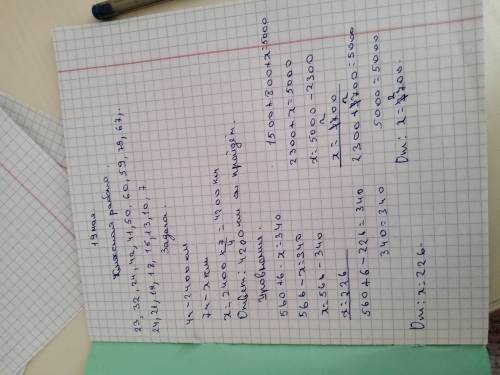 19 мая.
Классная работа.
23, 32, 24, 42, 41, 50. 60, 59, 78, 67,.
24, 21, 19, 18, 15, 13, 10, 7
Задача.
4ч - 2400 км
7ч - x км
x = 2400 × 7/4 = 4200 км
Ответ: 4200 км он пройдет.
Уравнения.
560 + 6 - x = 340.
566 - x = 340
x = 566 - 340
x = 226
560 + 6 - 226 = 340
340 = 340
Отв: x = 226.
1500 + 800 + x = 5000
2300 + x = 5000
x = 5000 - 2300
x = 2700
2300 + 2700 = 5000
5000 = 5000
Отв: x = 2700.